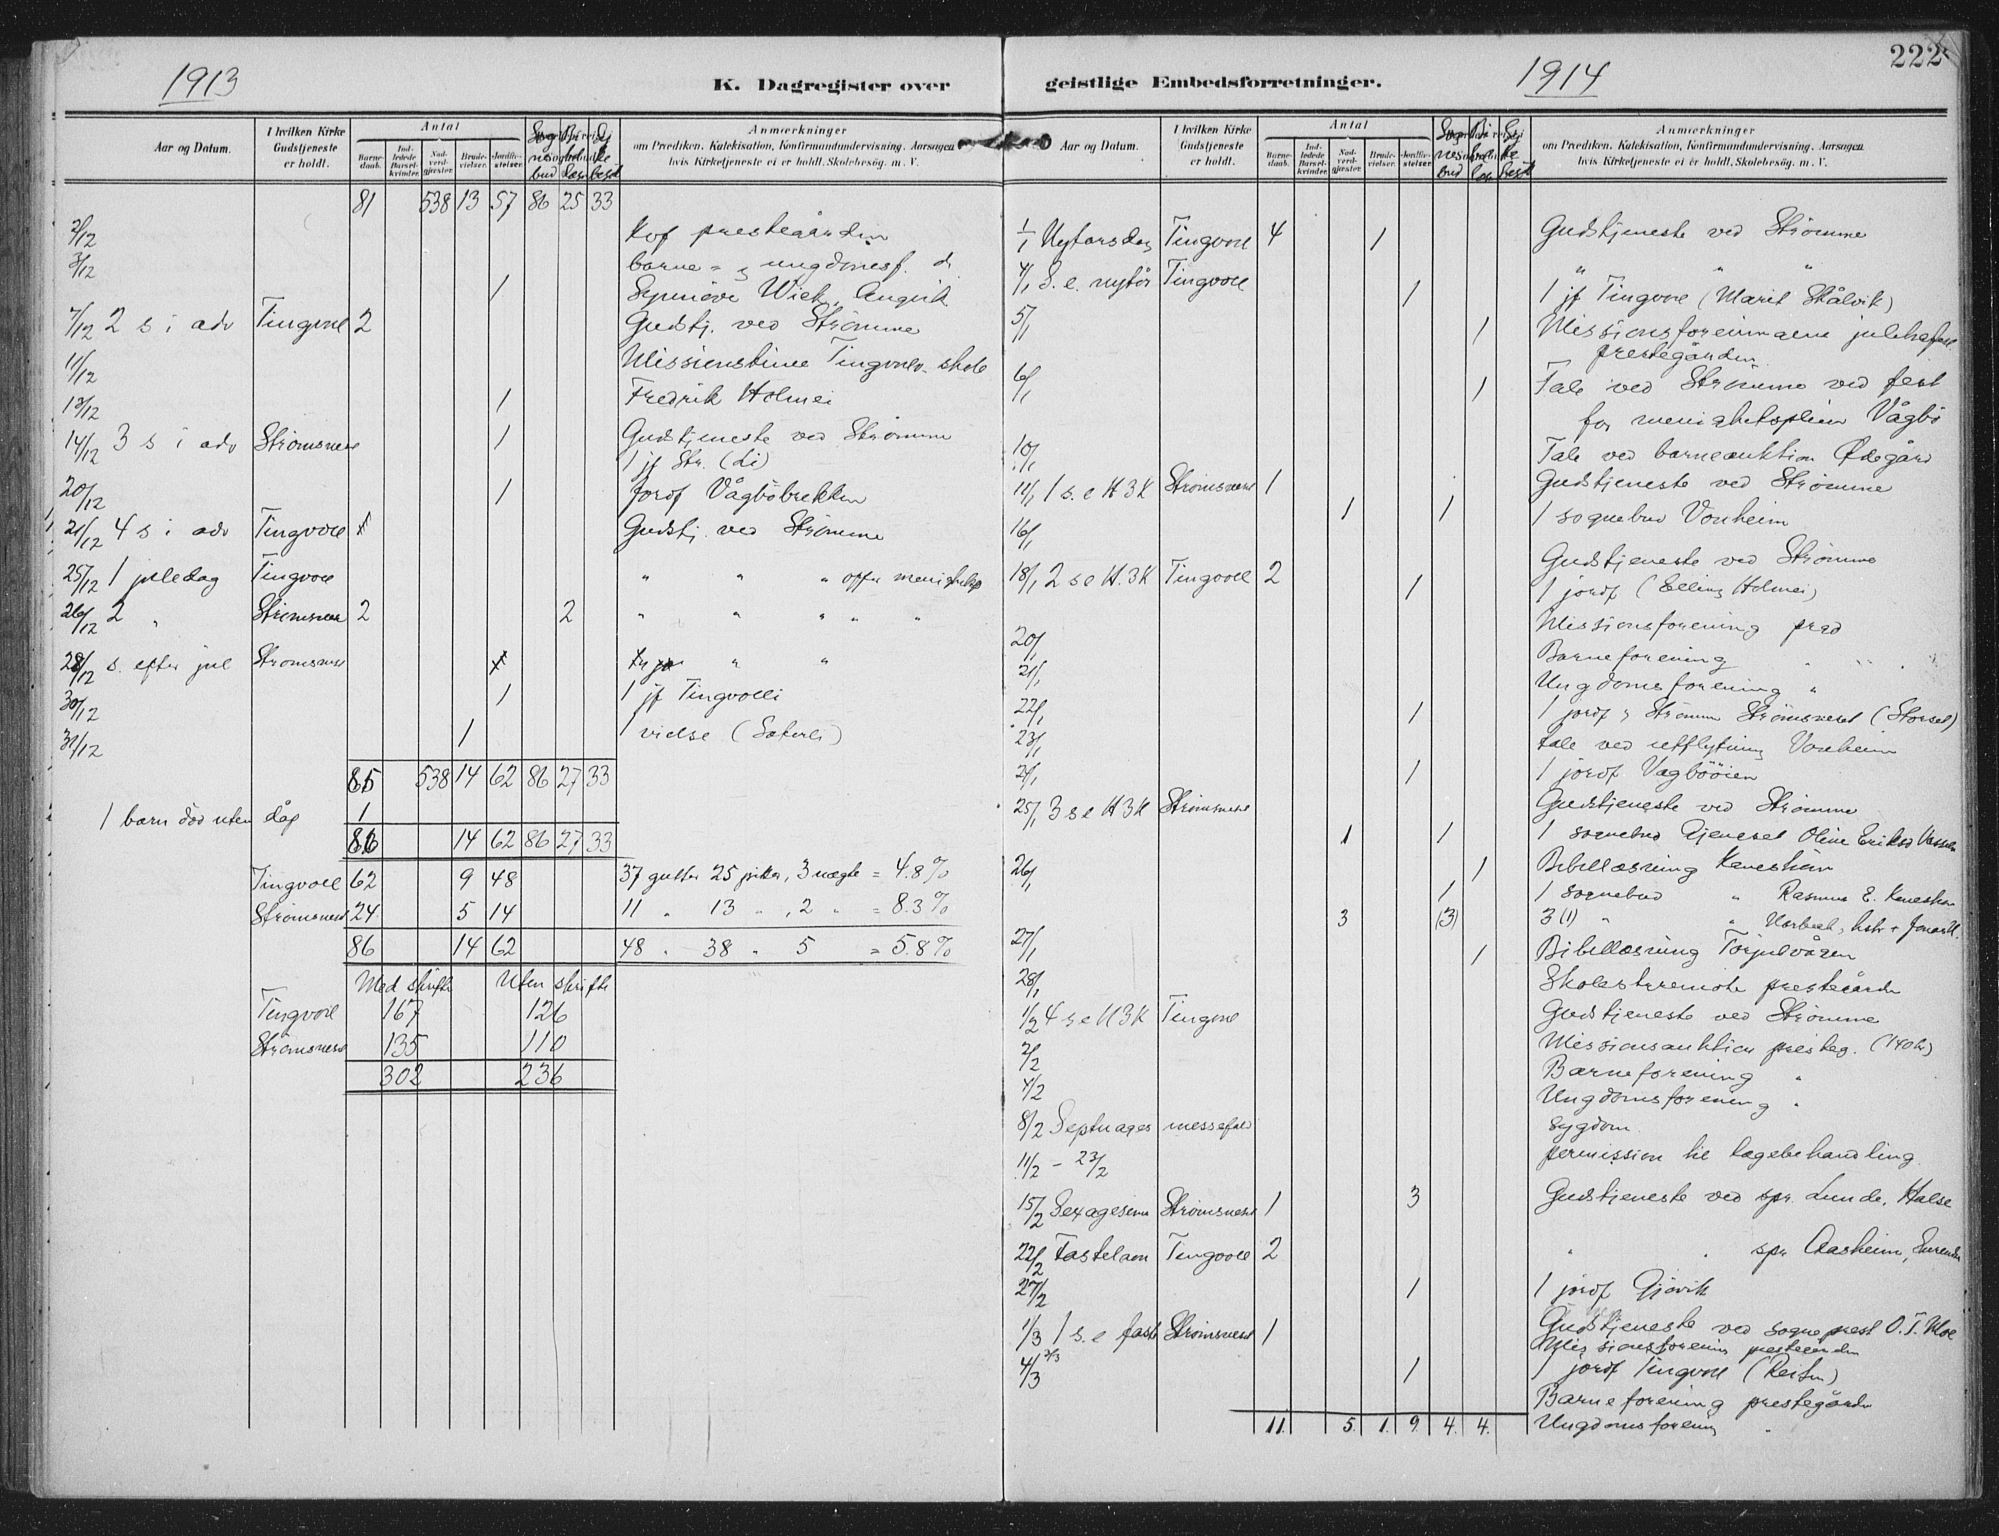 1913
K. Dagregister over
Aar og Datum.
I hvilken Kirke Gudstjeneste er holdt.
Antal
Barne-daab.
Ind-ledede Barsel-kvinder.
Nad-verd-gjester.
Brude-vielser.
Jordfæ-stelser.
Anmærkninger
om Prædiken, Katekisation, Konfirmandundervisning, Aarsagen
hvis Kirketjeneste ei er holdt, Skolebesøg. m. V.
81 538 13 57 86 25 33
2/12 kvf prestegården
3/12 barne- og ungdomsf. d
1 Synnöve Wiek, Angvik
7/12 2 s i adv Tingvoll 2 Gudstj. ved Strömme
11/12 Missionstime Tingvoll skole
13/12 1 Fredrik Holmei
14/12 3 s i adv Strömsnese 1 Gudstjeneste ved Strömme
1 jf Str. (Li)
20/12 1 jordf Vågböbrekken
21/12 4 s i adv Tingvoll Gudstj. ved Strömme
25/12 1 juledag Tingvoll " " " opfer
26/12 2 " Strömsnese 2 2 " " " " "
28/12 s. efter jul Strömsnese " "
30/12 1 1 jf Tingvoll
31/12 1 1 vielse (Sæterli)
85 538 14 62 86 27 33
1 barn död uten dåp 1
86 14 62 86 27 33
Tingvoll 62 9 48 37 gutter 25 piker, 3 uægte = 4.8%
Strömsnese 24 5 14 11 " 13 " , 2 " = 8.3%
86 14 62 48 " 38 " 5 = 5.8%
Med skrifte Uten skrifte
Tingvoll 167 126
Strömsnese 135 110
302 236
222
1914
geistlige Embedsforretninger.
Aar og Datum.
I hvilken Kirke Gudstjeneste er holdt.
Antal
Barne-daab.
Ind-ledede Barsel-kvinder.
Nad-verd-gjester.
Brude-vielser.
Jordfæ-stelser.
Anmærkninger
om Prædiken, Katekisation, Konfirmandundervisning, Aarsagen
hvis Kirketjeneste ei er holdt, Skolebesøg. m. V.
1/1 Nytårsdag Tingvoll 4 1 Gudstjeneste ved Strömme
4/1 S. e. nytår Tingvoll " " "
1 1 jf Tingvoll (Marit Skålvik)
5/1 1 Missionsforeningens julefest
prestegården
6/1 1 Tale ved Strömme ved fest
for menighetspleien Vågbö
10/1 Tale ved barneauktion Ødegård
11/1 1 s. e H 3 K Strömsnese 1 Gudstjeneste ved Strömme
16/1 1 1 1 sognebud Vonheim
18/1 2 s e H. 3 K Tingvoll 2 Gudstjeneste ved Strömme
1 1 jordf (Elling Holmei)
20/1 Missionsforening pred
21/1 Barneforening "
Ungdomsforening "
22/1 1 1 jordf v Strömme Strömsneset (Storset)
23/1 tale ved utflytning Vonheim
24/1 1 1 jordf Vågböøien
25/1 3 s e H 3 K Strömsnese Gudstjeneste ved Strömme
1 1 1 sognebud Gjeneset Oline Eriksd
26/1 1 Bibellæsning Kaneström
1 1 sognebud " Rasmus E. Kaneström
3 (3) 3 (1) " "
27/1 1 Bibellæsning Torjulvågen
28/1 Skolestyremöte prestegården
1/2 4 s e H 3 K Tingvoll Gudstjeneste ved Strömme
2/2 Missionsauktion presteg. (140 kr)
4/2 Barneforening "
Ungdomsforening "
8/2 Septuages messefald sygdom
11/2 - 23/2 permission til lægebehandling
15/2 Sexagesima Strömsnese 1 3 Gudstjeneste ved spr. Lunde, Halse
22/2 Fastelavn Tingvoll 2 " " spr Aasheim, Surendal
27/2 1 1 jordf Gjövik
1/3 1 s. e faste Strömsnese 1 Gudstjeneste ved sogneprest O. T. Moe
3/3 Missionsforening prestegården
4/3 1 1 jordf Tingvoll
Barneforening prestegården
11. 5. 1. 9. 4. 4. Ungdomsforening "